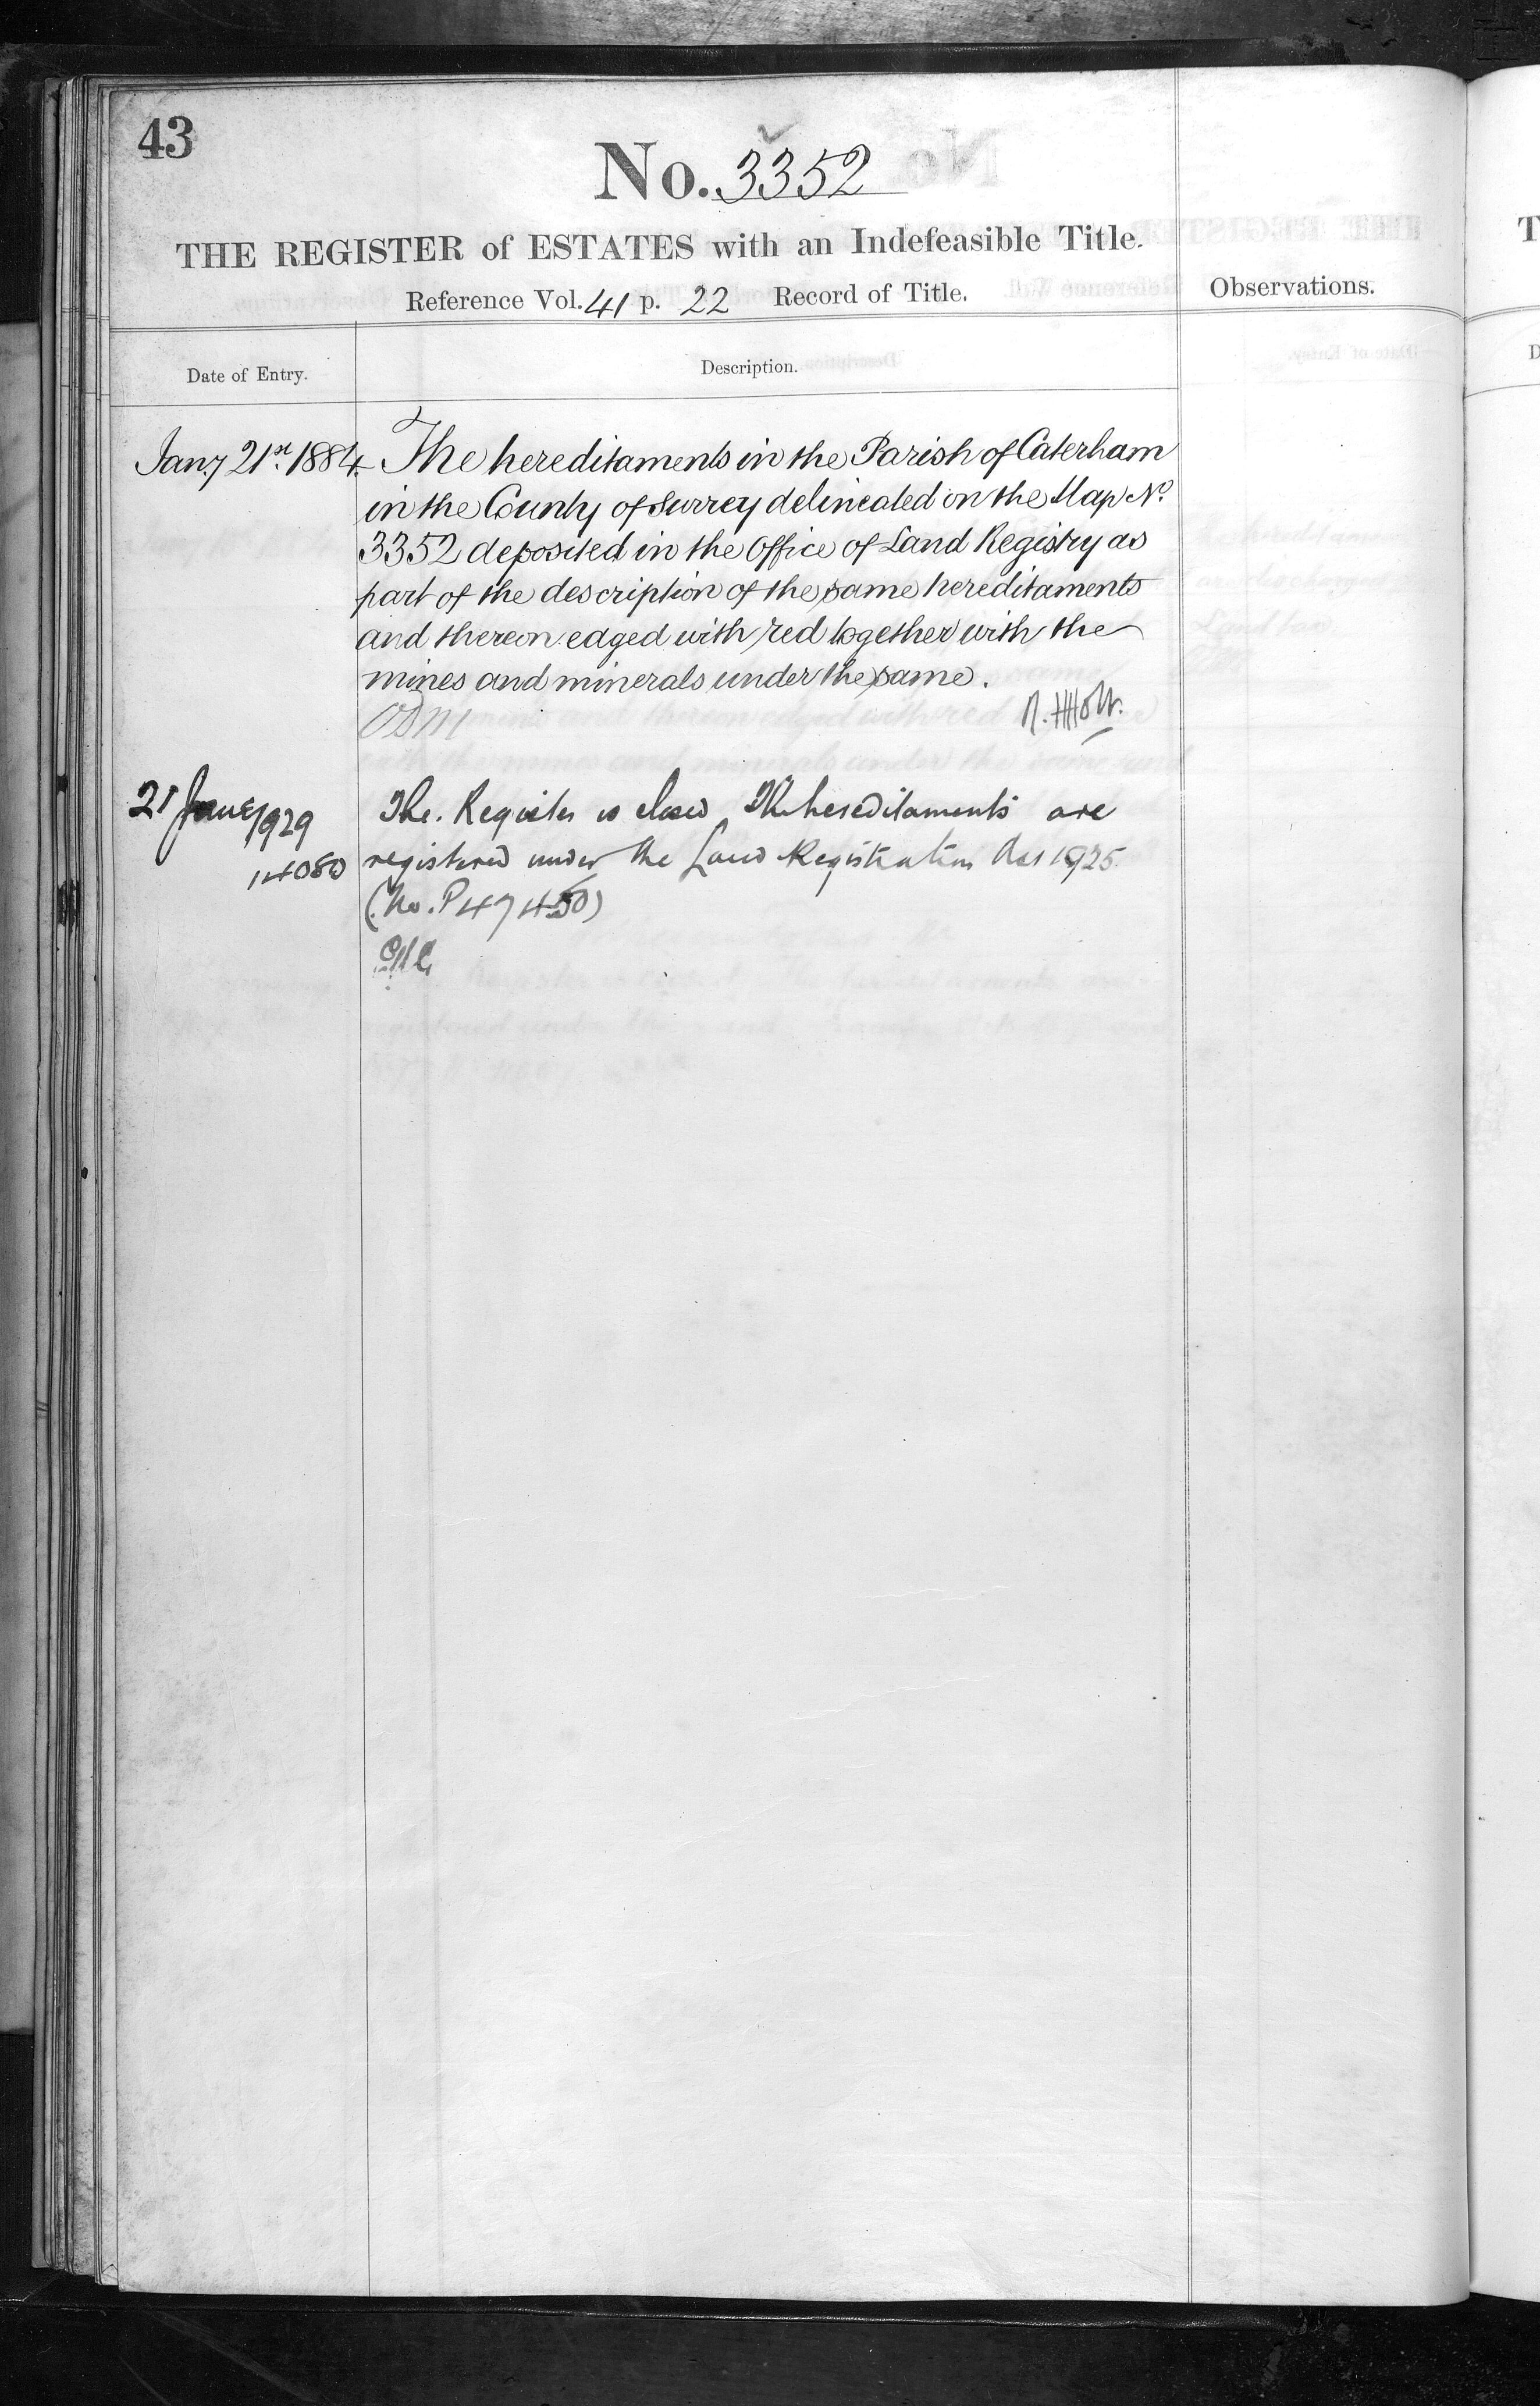 43
No. 3352
THE REGISTER of ESTATES with an Indefeasible Title.
Reference Vol. 41 p. 22 Record of Title.
Observations.
Date of Entry.
Description.
Jany 21st. 1884. The hereditaments in the Parish of Caterham
in the County of Surrey delineated on the Map No.
3352 deposited in the Office of Land Registry as
part of the description of the same hereditaments
and thereon edged with red together with the
mines and minerals under the same.
R. H Holt.
21 June 1929 The Register is closed The hereditaments are
14080 registered under the Land Registration Act 1925.
(No. P 47450)